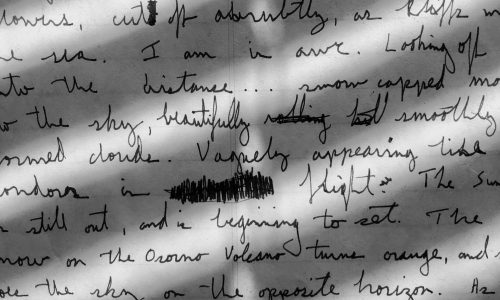 lowers, cut off abruptly, as bluffs m
he sea. I am in awe. Looking off
nto the distance.... snow capped mo
o the sky, beautifully rolling smoothly
ormed clouds. Vaguely appearing like
ondors in flight. The Sun
s still out, and is beginning to set. The
now on the Osorno Volcano turns orange, and s
the sky on the opposite horizon. As